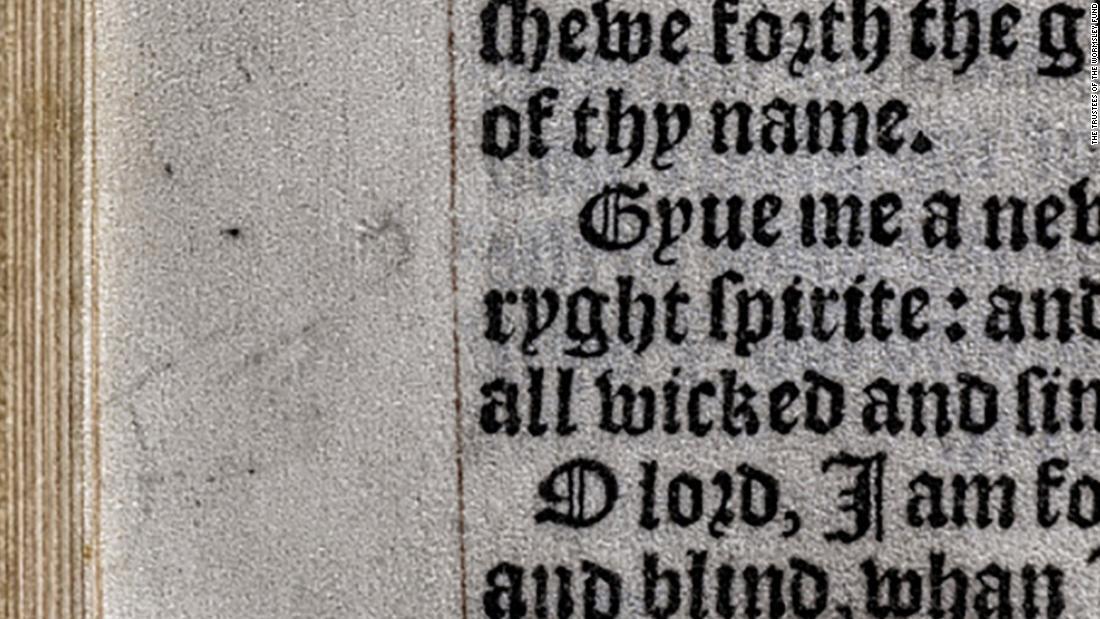 ſhewe foꝛth the g
of thy name.
Gyue me a new
ryght ſpirite: and
all wicked and ſin
O loꝛd, I am fo
and blind, whan
THE TRUSTEES OF THE WORMSLEY FUND